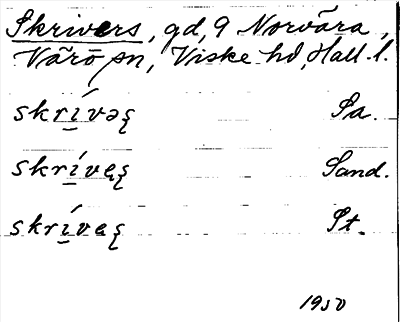 Skrivers, gd, 9 Norvära,
Värö sn, Viske hd, Hall. l.
skrí̱vəʂ Sa.
skrí̱vęʂ Sand.
skrí̱veʂ St.
1950